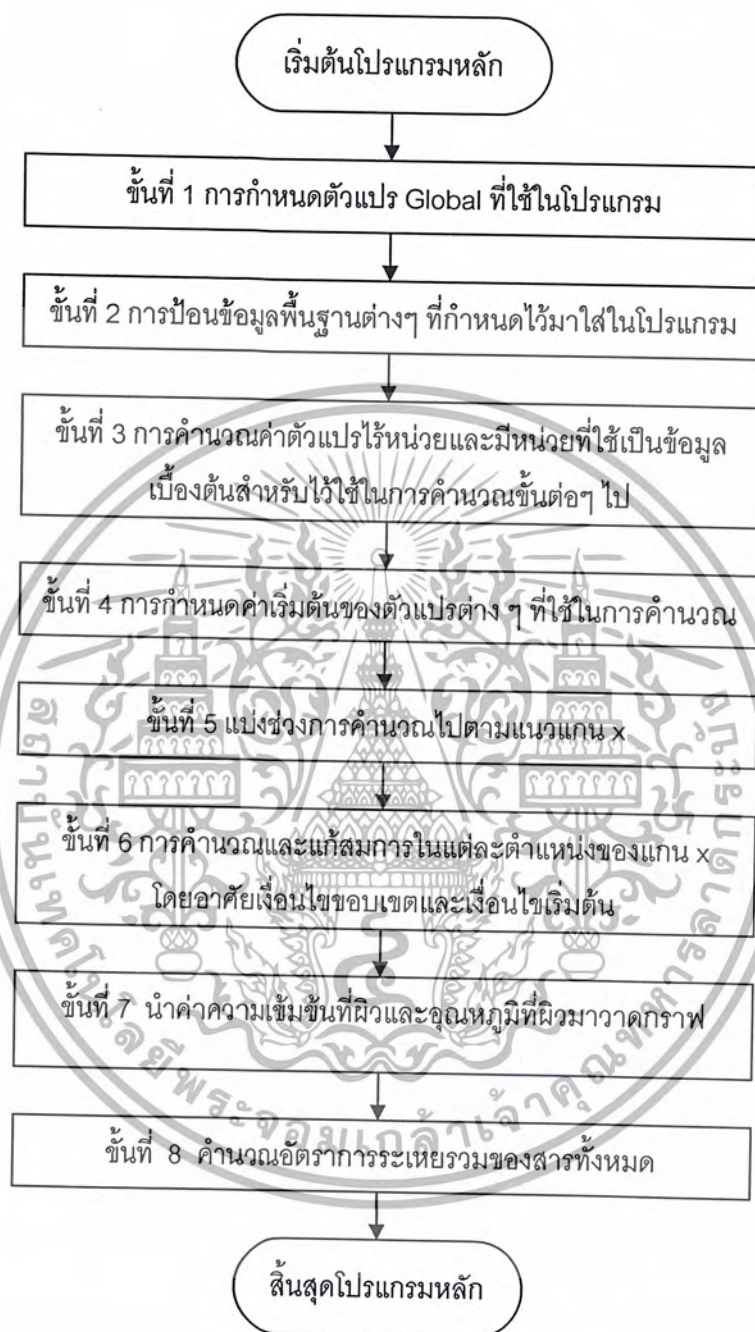 เริ่มต้นโปรแกรมหลัก
ขั้นที่ 1 การกำหนดตัวแปร Global ที่ใช้ในโปรแกรม
ขั้นที่ 2 การป้อนข้อมูลพื้นฐานต่างๆ ที่กำหนดไว้มาใส่ในโปรแกรม
ขั้นที่ 3 การคำนวณค่าตัวแปรไร้หน่วยและมีหน่วยที่ใช้เป็นข้อมูล
เบื้องต้นสำหรับไว้ใช้ในการคำนวณขั้นต่อๆ ไป
ขั้นที่ 4 การกำหนดค่าเริ่มต้นของตัวแปรต่าง ๆ ที่ใช้ในการคำนวณ
ขั้นที่ 5 แบ่งช่วงการคำนวณไปตามแนวแกน x
ขั้นที่ 6 การคำนวณและแก้สมการในแต่ละตำแหน่งของแกน x
โดยอาศัยเงื่อนไขขอบเขตและเงื่อนไขเริ่มต้น
ขั้นที่ 7 นำค่าความเข้มข้นที่ผิวและอุณหภูมิที่ผิวมาวาดกราฟ
ขั้นที่ 8 คำนวณอัตราการระเหยรวมของสารทั้งหมด
สิ้นสุดโปรแกรมหลัก
สถาบันเทคโนโลยีพระจอมเกล้าเจ้าคุณทหารลาดกระบัง